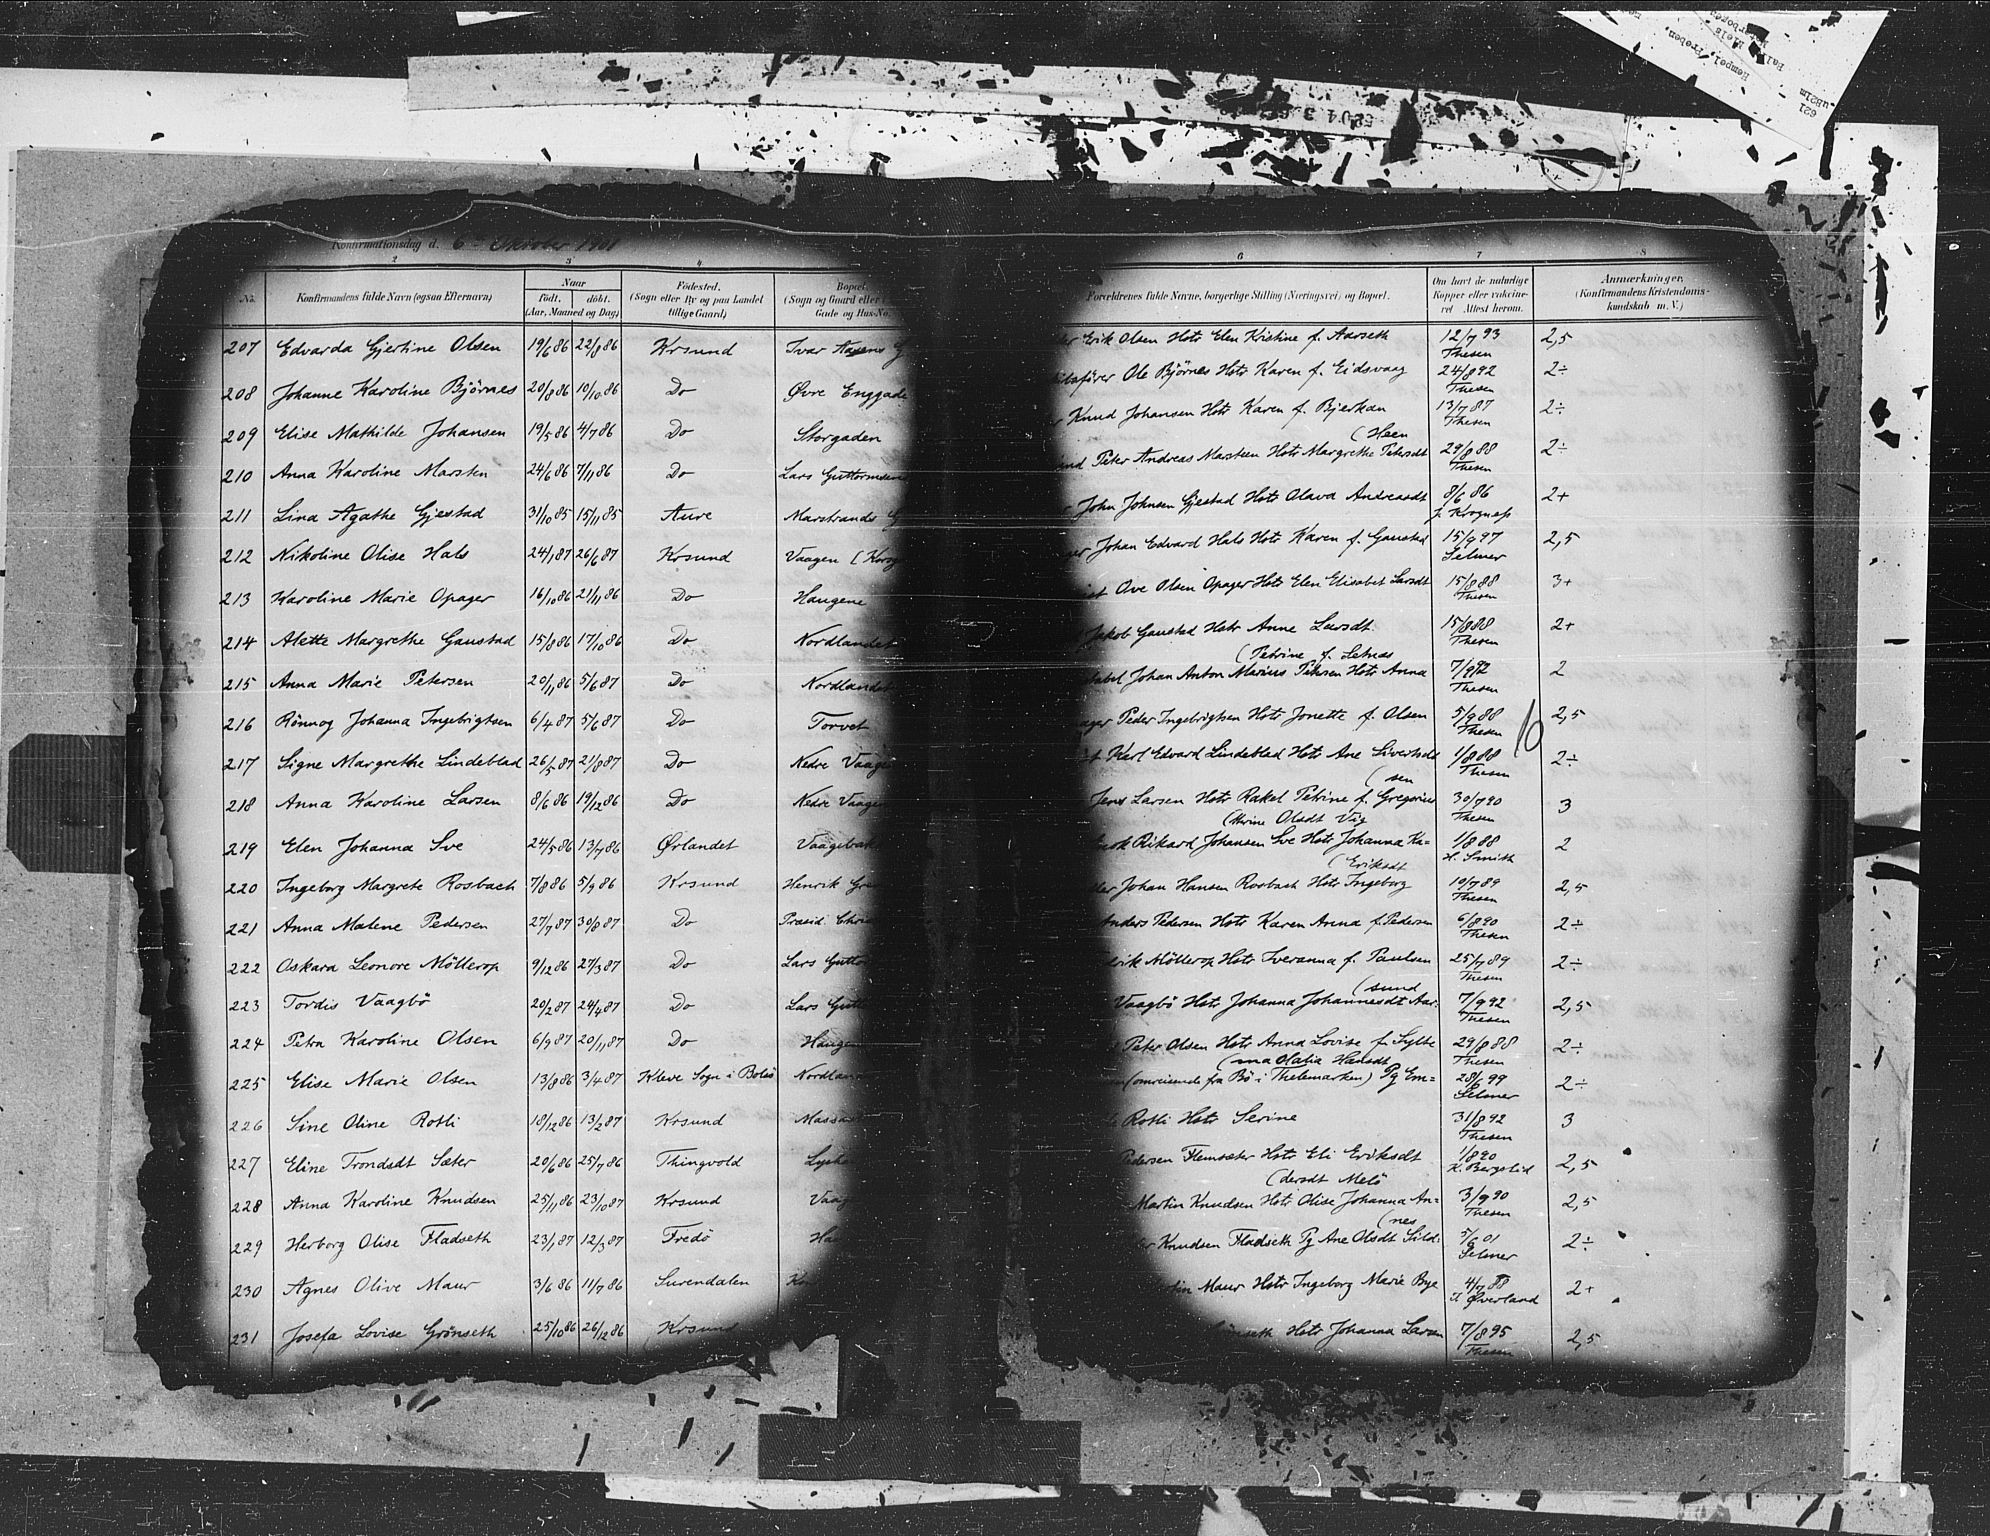 Konfirmationsdag d. 6 Oktober 1901
2 3 4 6 7 8
No.
Konfirmandens fulde Navn (ogsaa Efternavn)
Naar
født. døbt.
(Aar, Maaned og Dag)
Fødested.
(Sogn eller By og paa Landet
tillige Gaard)
Bopæl
(Sogn og Gaard eller
Gade og Hus-No.
Forældrenes fulde Navne, borgerlige Stilling (Næringsvei) og Bopæl.
Om havt de naturlige
Kopper eller vaccine-
ret Attest herom.
Anmærkninger.
(Konfirmandens Kristendoms-
kundskab m. V.)
207 Edvarda Gjertine Olsen 19/6 86 22/8 86 Krsund Ivar Aasens G
Erik Olsen Hstr Elen Kristine f. Aarseth 12/7 93 2,5
Thesen
208 Johanne Karoline Björnes 20/8 86 10/10 86 Do Øvre Enggade
Ole Björnes Hstr Karen f. Eidsvaag 24/8 92 2÷
Thesen
209 Elise Mathilde Johansen 19/5 86 4/7 86 Do Storgaden
Knud Johansen Hstr Karen f. Bjerkan 13/7 87 2÷
Thesen
(Heen
210 Anna Karoline Marsten 24/6 86 7/11 86 Do Lars Guttormsens
Peter Andreas Marsteen Hstr Margrethe Petersdt 29/8 88 2÷
Thesen
211 Lina Agathe Gjestad 31/10 85 15/11 85 Aure Marstrands G
John Johnsen Gjestad Hstr Olava Andreasdt 8/6 86 2+
J. Krogness
212 Nikoline Olise Hals 24/1 87 26/6 87 Krsund Vaagen
Johan Edvard Hals Hstr Karen f. Gaustad 15/9 97 2,5
Selmer
213 Karoline Marie Opager 16/10 86 21/11 86 Do Haugene
Ove Olsen Opager Hstr Elen Elisabet Larsdt 15/8 88 3+
Thesen
214 Alette Margrethe Gaustad 15/8 86 17/10 86 Do Nordlandet
Jakob Gaustad Hstr Anne Larsdt. 15/8 88 2+
Thesen
(Petrine f. Setnæs
215 Anna Marie Petersen 20/11 86 5/6 87 Do Nordlandet
Johan Anton Marius Petersen Hstr Anna 7/9 92 2
Thesen
216 Rönnog Johanna Ingebrigtsen 6/4 87 5/6 87 Do Torvet
Peder Ingebrigtsen Hstr Jonette f. Olsen 5/9 88 2,5
Thesen
217 Signe Margrethe Lindeblad 26/5 87 21/8 87 Do Nedre Vaagen
Karl Edvard Lindeblad Hstr Ane Sivertsdt 1/8 88 2÷
Thesen
(sen
218 Anna Karoline Larsen 8/6 86 19/12 86 Do Nedre Vaagen
Jens Larsen Hstr Rakel Petrine f. Gregorius 30/7 90 3
Thesen
(thrine Olsdt Vig
219 Elen Johanna Sve 24/5 86 13/7 86 Ørlandet
Rikard Johansen Sve Hstr Johanna Ka= 1/8 88 2
H. Smith
(Eriksdt
220 Ingeborg Margrete Rosbach 7/8 86 5/9 86 Krsund Henrik
Johan Hansen Rosbach Hstr Ingeborg 10/7 89 2,5
Thesen
221 Anna Malene Pedersen 27/7 87 30/8 87 Do Præsid. Chri
Anders Pedersen Hstr Karen Anna f. Pedersen 6/8 90 2÷
Thesen
222 Oskara Leonore Möllerop 9/12 86 27/3 87 Do Lars Gutto
Möllerop Hstr Iveranna f. Paulsen 25/7 89 2÷
Thesen
(sund
223 Tordis Vaagbö 20/2 87 24/4 87 Do Lars Gutt
Vaagbö Hstr Johanna Johannesdt Aar. 7/9 92 2,5
Thesen
224 Petra Karoline Olsen 6/9 87 20/11 87 Do Haugen
Peter Olsen Hstr Anna Lovise f. Sylte 29/8 88 2÷
Thesen
(ma Olatia Hansdt
225 Elise Marie Olsen 13/8 86 3/4 87 Kleve Sogn i Nordland
(omreisende fra Bö i Thelemarken) Pg Em= 28/6 99 2÷
Selmer
226 Sine Oline Rotli 18/12 86 13/2 87 Krsund
Rotli Hstr Serine 31/8 92 3
Thesen
227 Eline Trondsdt Sæter 20/6 86 25/7 86 Thingvold
Pedersen Flemsæter Hstr Eli Eriksdt 1/8 90 2,5
K. Bergslid
(dersdt Melö
228 Anna Karoline Knudsen 25/11 86 23/10 87 Krsund Vaag
Martin Knudsen Hstr Olise Johanna An= 3/9 90 2,5
Thesen
(nes
229 Herborg Olise Fladseth 23/1 87 12/3 87 Fredö Ha
Knudsen Fladseth Pg Ane Olsdt Sild. 5/6 01 2÷
Selmer
230 Agnes Olive Maur 3/6 86 11/7 86 Surendalen
Maur Hstr Ingeborg Marie Bye 4/7 88 2+
Øverland
231 Josefa Lovise Grönseth 25/10 86 26/12 86 Krsund
Hstr Johanna Larsen 7/8 95 2,5
Thesen